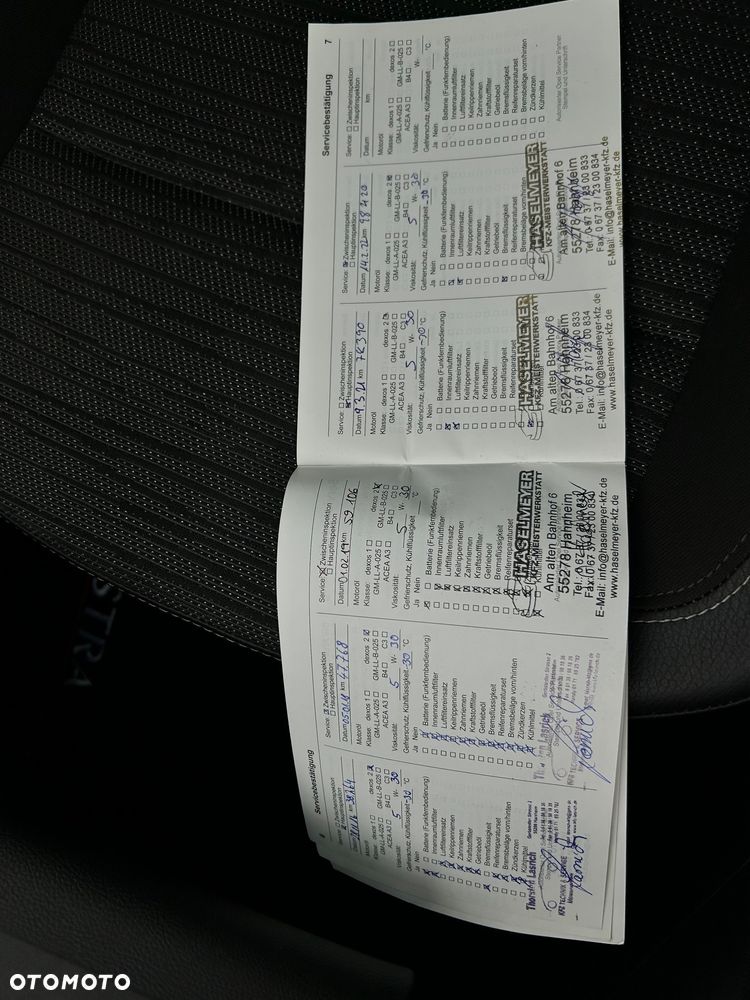 Servicebestätigung
6
Service: ☐ Zwischeninspektion
☒ Hauptinspektion
km
Motoröl
Klasse: dexos 1 ☐ dexos 2 ☒
GM-LL-A-025 ☐ GM-LL-B-025 ☐
ACEA A3 ☐ B4 ☐ C3 ☐
Viskosität: 5 W- 30
Gefrierschutz, Kühlflüssigkeit -30 °C
Ja Nein
Batterie (Funkfernbedienung)
Innenraumluftfilter
Luftfiltereinsatz
Keilrippenriemen
Zahnriemen
Kraftstofffilter
Getriebeöl
Bremsflüssigkeit
Reifenreparaturset
Bremsbeläge vorn/hinten
Zündkerzen
Kühlmittel
Thorsten Lasrich
KFZ TECHNIK & SERVICE
Service: ☒ Zwischeninspektion
☐ Hauptinspektion
Datum 05.01.18 km 47.768
Motoröl
Klasse: dexos 1 ☐ dexos 2 ☒
GM-LL-A-025 ☐ GM-LL-B-025 ☐
ACEA A3 ☐ B4 ☐ C3 ☐
Viskosität: 5 W- 30
Gefrierschutz, Kühlflüssigkeit -30 °C
Ja Nein
Batterie (Funkfernbedienung)
Innenraumluftfilter
Luftfiltereinsatz
Keilrippenriemen
Zahnriemen
Kraftstofffilter
Getriebeöl
Bremsflüssigkeit
Reifenreparaturset
Bremsbeläge vorn/hinten
Zündkerzen
Kühlmittel
KFZ TECHNIK & SERVICE
Service: ☒ Zwischeninspektion
☐ Hauptinspektion
Datum 01.02.19 km 59.106
Motoröl
Klasse: dexos 1 ☐ dexos 2 ☒
GM-LL-A-025 ☐ GM-LL-B-025 ☐
ACEA A3 ☐ B4 ☐ C3 ☐
Viskosität: 5 W- 30
Gefrierschutz, Kühlflüssigkeit °C
Ja Nein
Batterie (Funkfernbedienung)
Innenraumluftfilter
Luftfiltereinsatz
Keilrippenriemen
Zahnriemen
Kraftstofffilter
Getriebeöl
Bremsflüssigkeit
Reifenreparaturset
HASELMEYER
KFZ-MEISTERWERKSTATT
Am alten Bahnhof 6
55278 Hahnheim
E-Mail: info@haselmeyer-kfz.de
www.haselmeyer-kfz.de
Service: ☐ Zwischeninspektion
☒ Hauptinspektion
Datum 9.3.21 km 78390
Motoröl
Klasse: dexos 1 ☐ dexos 2 ☒
GM-LL-A-025 ☐ GM-LL-B-025 ☐
ACEA A3 ☐ B4 ☐ C3 ☐
Viskosität: 5 W- 30
Gefrierschutz, Kühlflüssigkeit °C
Ja Nein
Batterie (Funkfernbedienung)
Innenraumluftfilter
Luftfiltereinsatz
Keilrippenriemen
Zahnriemen
Kraftstofffilter
Getriebeöl
Bremsflüssigkeit
Reifenreparaturset
HASELMEYER
KFZ-MEISTERWERKSTATT
Am alten Bahnhof 6
55278 Hahnheim
Tel.: 0 67 37 / 23 00 833
Fax: 0 67 37 / 23 00 834
E-Mail: info@haselmeyer-kfz.de
www.haselmeyer-kfz.de
Service: ☒ Zwischeninspektion
☐ Hauptinspektion
Datum 14.2.22 km 98420
Motoröl
Klasse: dexos 1 ☐ dexos 2 ☒
GM-LL-A-025 ☐ GM-LL-B-025 ☐
ACEA A3 ☐ B4 ☐ C3 ☐
Viskosität: 5 W- 30
Gefrierschutz, Kühlflüssigkeit °C
Ja Nein
Batterie (Funkfernbedienung)
Innenraumluftfilter
Luftfiltereinsatz
Keilrippenriemen
Zahnriemen
Kraftstofffilter
Getriebeöl
Bremsflüssigkeit
Reifenreparaturset
HASELMEYER
KFZ-MEISTERWERKSTATT
Am alten Bahnhof 6
55278 Hahnheim
Tel.: 0 67 37 / 23 00 833
Fax: 0 67 37 / 23 00 834
E-Mail: info@haselmeyer-kfz.de
www.haselmeyer-kfz.de
Servicebestätigung 7
Service: ☐ Zwischeninspektion
☐ Hauptinspektion
Datum km
Motoröl
Klasse: dexos 1 ☐ dexos 2 ☐
GM-LL-A-025 ☐ GM-LL-B-025 ☐
ACEA A3 ☐ B4 ☐ C3 ☐
Viskosität: W-
Gefrierschutz, Kühlflüssigkeit °C
Ja Nein
Batterie (Funkfernbedienung)
Innenraumluftfilter
Luftfiltereinsatz
Keilrippenriemen
Zahnriemen
Kraftstofffilter
Getriebeöl
Bremsflüssigkeit
Reifenreparaturset
Bremsbeläge vorn/hinten
Zündkerzen
Kühlmittel
Autorisierter Opel Service Partner
Stempel und Unterschrift
STRA
OTOMOTO